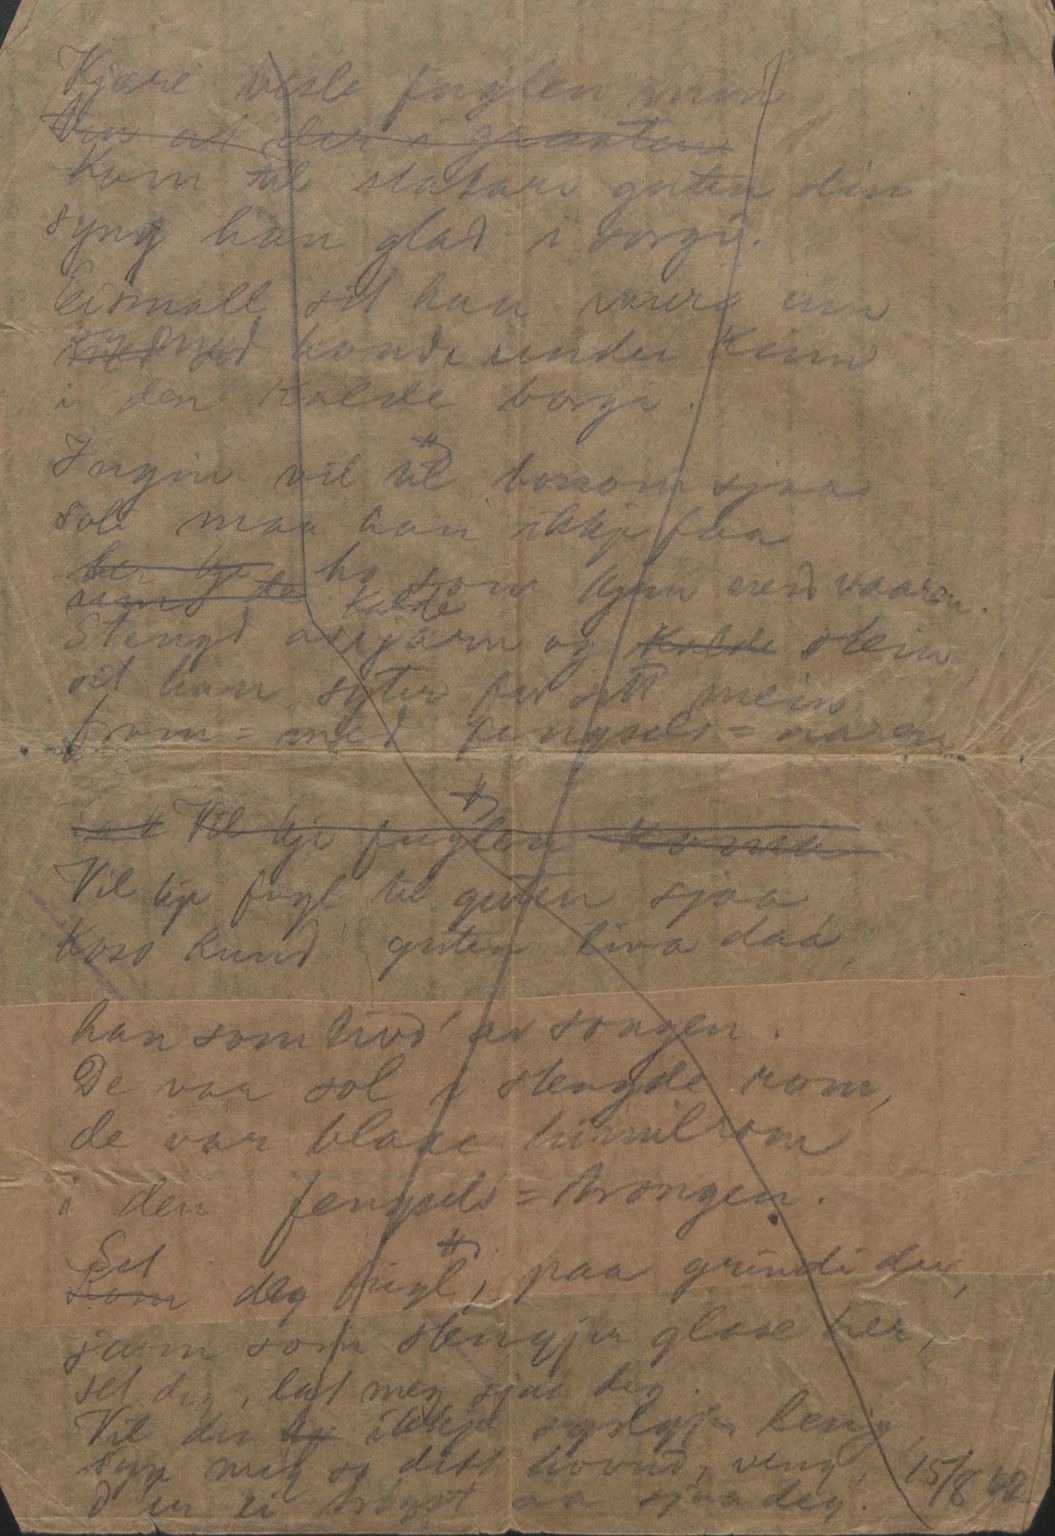 Kjære vesle fuglen min
Kom til stakars guten din
syng han glad i sorgi.
Eismall sit han
med hondi under Kinn
i den kalde borgi.
Ingin vil til honom sjaa
soli maa han ikkje faa
som kjem med vaaren.
Stengd av jarn og kalde Kalde stein,
sit han, syter for sitt mein
fram = med fengsels = aaren.
Vil kje fuglen koma
Vil kje fugl til guten sjaa,
Koss kund guten liva daa,
han som livd' av songen.
De var sol i stengde rom,
de var blaae himilrom
i den fengsels = trongen.
Set
Kom deg fugl, paa grindi der,
jarn som stengjer glase her,
set deg, lat meg sjaa deg.
Vil du ikkje leng,
syn meg so ditt hovud, veng,
d er ei trøyst aa sjaa deg.
15/8 42